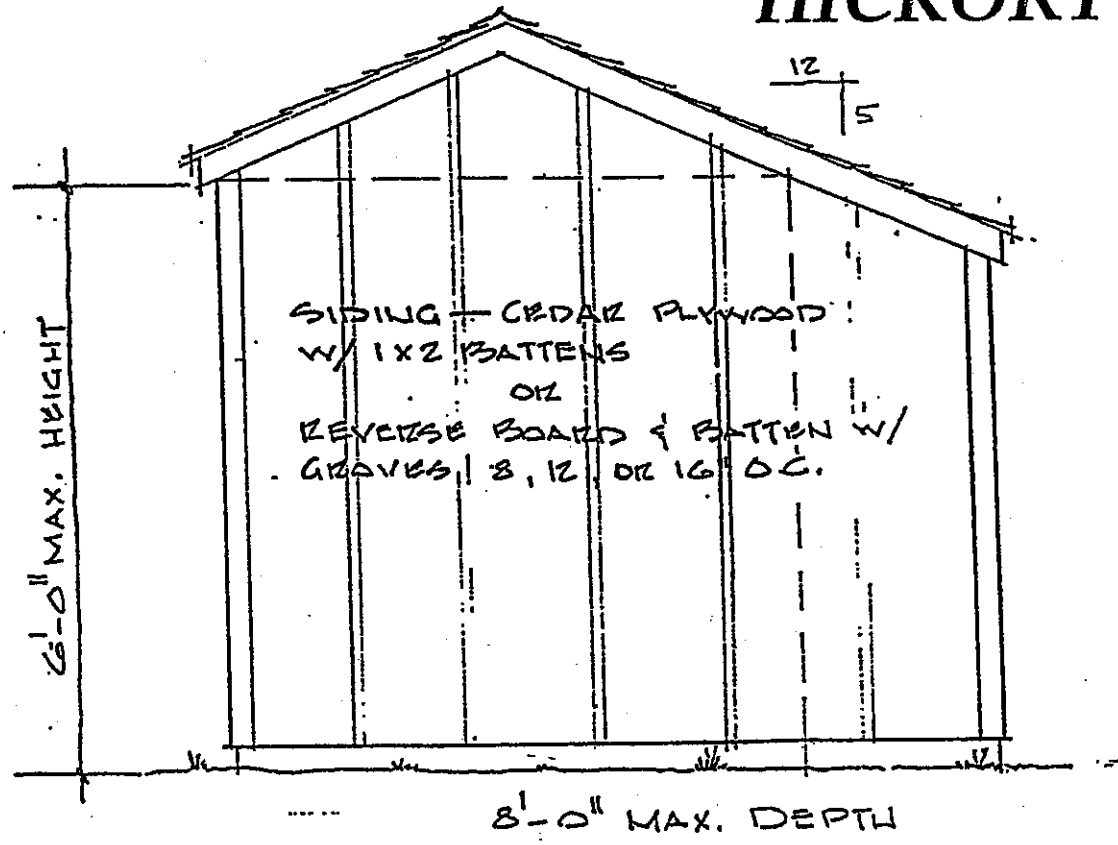 HICKORY
12
5
SIDING — CEDAR PLYWOOD
W/ 1X2 BATTENS
OR
REVERSE BOARD & BATTEN W/
GROVES 8, 12, OR 16 O.C.
6'-0" MAX. HEIGHT
8'-0" MAX. DEPTH